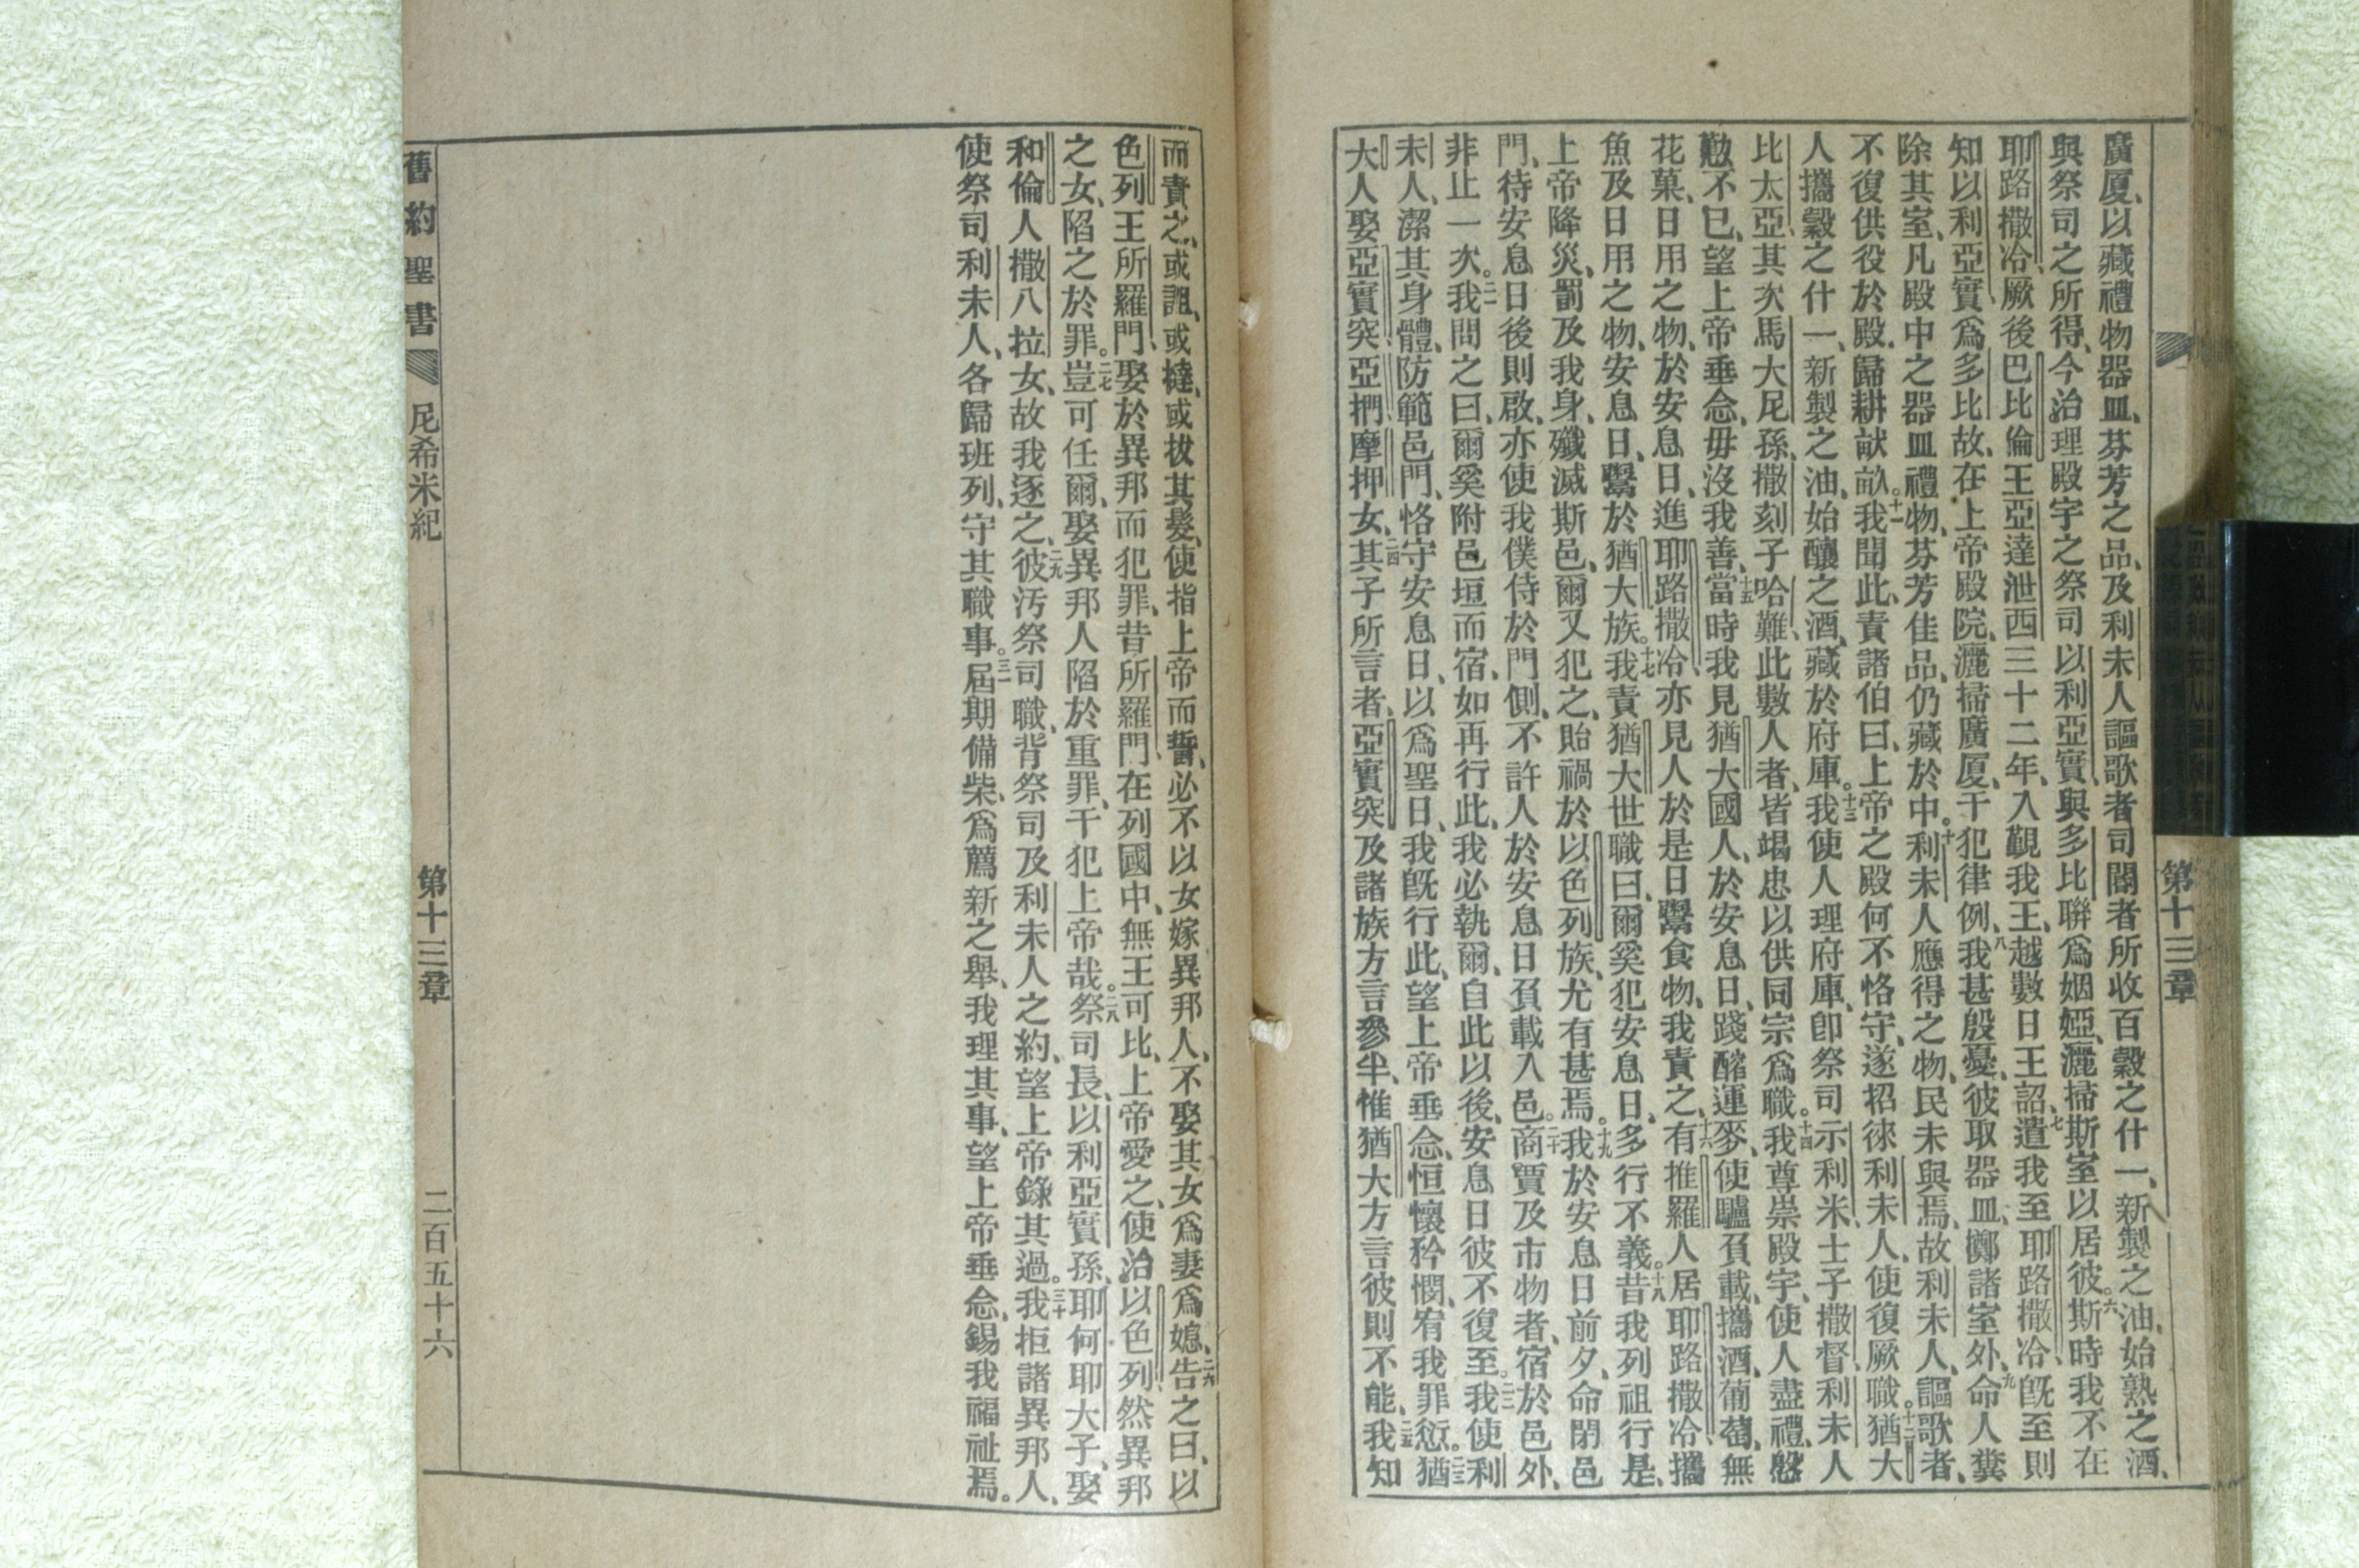 第十三章
廣厦、以藏禮物器皿、芬芳之品、及利未人謳歌者司閽者所收百穀之什一、新製之油、始熟之酒、
與祭司之所得、今治理殿宇之祭司以利亞實、與多比聯爲姻婭、灑掃斯室以居彼。六斯時我不在
耶路撒冷、厥後巴比倫王亞達泄西三十二年、入覲我王、越數日王詔、七遣我至耶路撒冷、旣至則
知以利亞實爲多比故、在上帝殿院、灑掃廣厦、干犯律例、八我甚殷憂、彼取器皿、擲諸室外、九命人糞
除其室、凡殿中之器皿禮物、芬芳佳品、仍藏於中。十利未人應得之物、民未與焉、故利未人、謳歌者、
不復供役於殿、歸耕畎畝。十一我聞此、責諸伯曰、上帝之殿何不恪守、遂招徠利未人、使復厥職、十二猶大
人攜穀之什一、新製之油、始釀之酒、藏於府庫。十三我使人理府庫、卽祭司示利米、士子撒督、利未人
比太亞、其次馬大尼孫、撒刻子哈難、此數人者、皆竭忠以供同宗爲職。十四我尊崇殿宇、使人盡禮、慇
懃不已、望上帝垂念、毋沒我善、十五當時我見猶大國人、於安息日、踐醡運麥、使驢負載、攜酒葡萄無
花菓、日用之物、於安息日、進耶路撒冷、亦見人於是日鬻食物、我責之、十六有推羅人居耶路撒冷、攜
魚及日用之物、安息日、鬻於猶大族。十七我責猶大世職曰、爾奚犯安息日、多行不義。十八昔我列祖行是、
上帝降災、罰及我身、殲滅斯邑、爾又犯之、貽禍於以色列族、尤有甚焉。十九我於安息日前夕、命閉邑
門、待安息日後則啟、亦使我僕侍於門側、不許人於安息日負載入邑。二十商賈及市物者、宿於邑外、
非止一次。二一我問之曰、爾奚附邑垣而宿、如再行此、我必執爾、自此以後、安息日彼不復至。二二我使利
未人、潔其身體、防範邑門、恪守安息日、以爲聖日、我旣行此、望上帝垂念、恒懷矜憫、宥我罪愆。二三猶
大人娶亞實突亞捫摩押女、二四其子所言者、亞實突及諸族方言參半、惟猶大方言彼則不能、二五我知
而責之、或詛、或撻、或拔其髮、使指上帝而誓、必不以女嫁異邦人、不娶其女爲妻爲媳、二六告之曰、以
色列王所羅門、娶於異邦而犯罪、昔所羅門在列國中、無王可比、上帝愛之、使治以色列、然異邦
之女、陷之於罪。二七豈可任爾、娶異邦人陷於重罪、干犯上帝哉。二八祭司長、以利亞實孫、耶何耶大子、娶
和倫人撒八拉女、故我逐之、二九彼汚祭司職、背祭司及利未人之約、望上帝錄其過。三十我拒諸異邦人、
使祭司利未人、各歸班列、守其職事。三一屆期備柴、爲薦新之舉、我理其事、望上帝垂念、錫我福祉焉。
舊約聖書 尼希米紀 第十三章 二百五十六